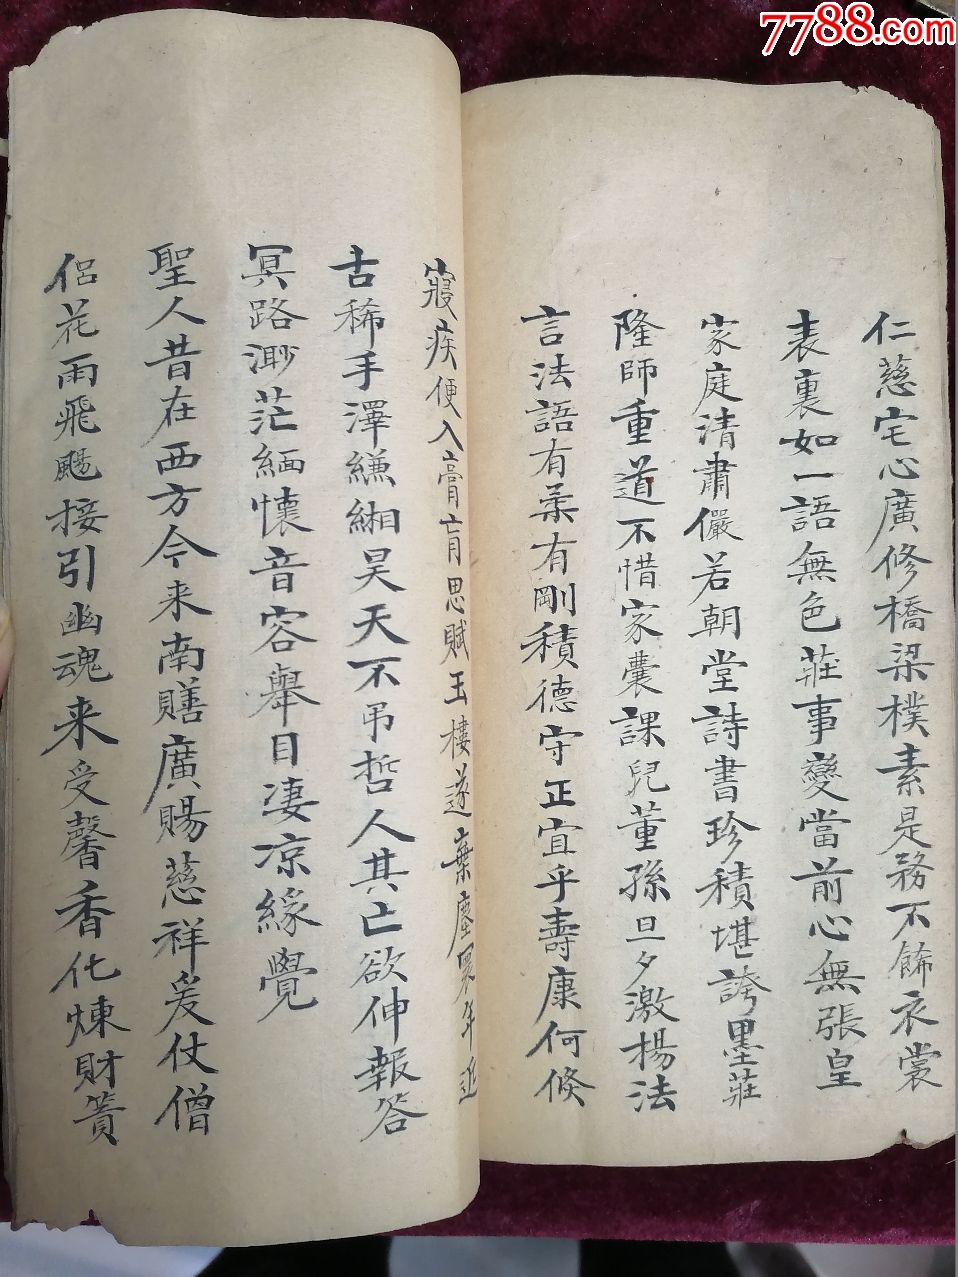 7788.com
仁慈宅心廣修橋梁樸素是務不飾衣裳
表裏如一語無色莊事變當前心無張皇
家庭清肅儼若朝堂詩書珍積堪誇墨莊
隆師重道不惜家囊課兒董孫旦夕激揚法
言法語有柔有剛積德守正宜乎壽康何倏
寢疾便入膏肓思賦玉樓遂棄塵寰年近
古稀手澤縑緗昊天不吊哲人其亡欲伸報答
冥路渺茫緬懷音容舉目凄凉緣覺
聖人昔在西方今来南膳廣賜慈祥爰仗僧
侶花雨飛颺接引幽魂来受馨香化煉財簀